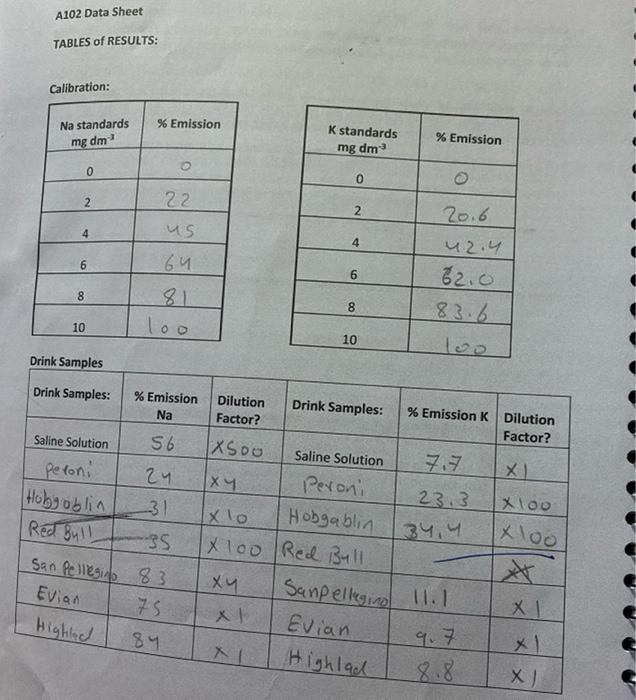 A102 Data Sheet
TABLES of RESULTS:
Calibration:
Na standards mg dm-3 % Emission
0 0
2 22
4 45
6 64
8 81
10 100
K standards mg dm-3 % Emission
0 0
2 20.6
4 42.4
6 62.0
8 83.6
10 100
Drink Samples
Drink Samples: % Emission Na Dilution Factor? Drink Samples: % Emission K Dilution Factor?
Saline Solution 56 X500 Saline Solution 7.7 X1
Peroni 24 X4 Peroni 23.3 X100
Hobgoblin 31 X10 Hobgablin 34.4 X100
Red Bull 35 X100 Red Bull
San Pellegino 83 X4 Sanpellegino 11.1 X1
Evian 75 X1 Evian 9.7 X1
Highlad 84 X1 Highlad 8.8 X1